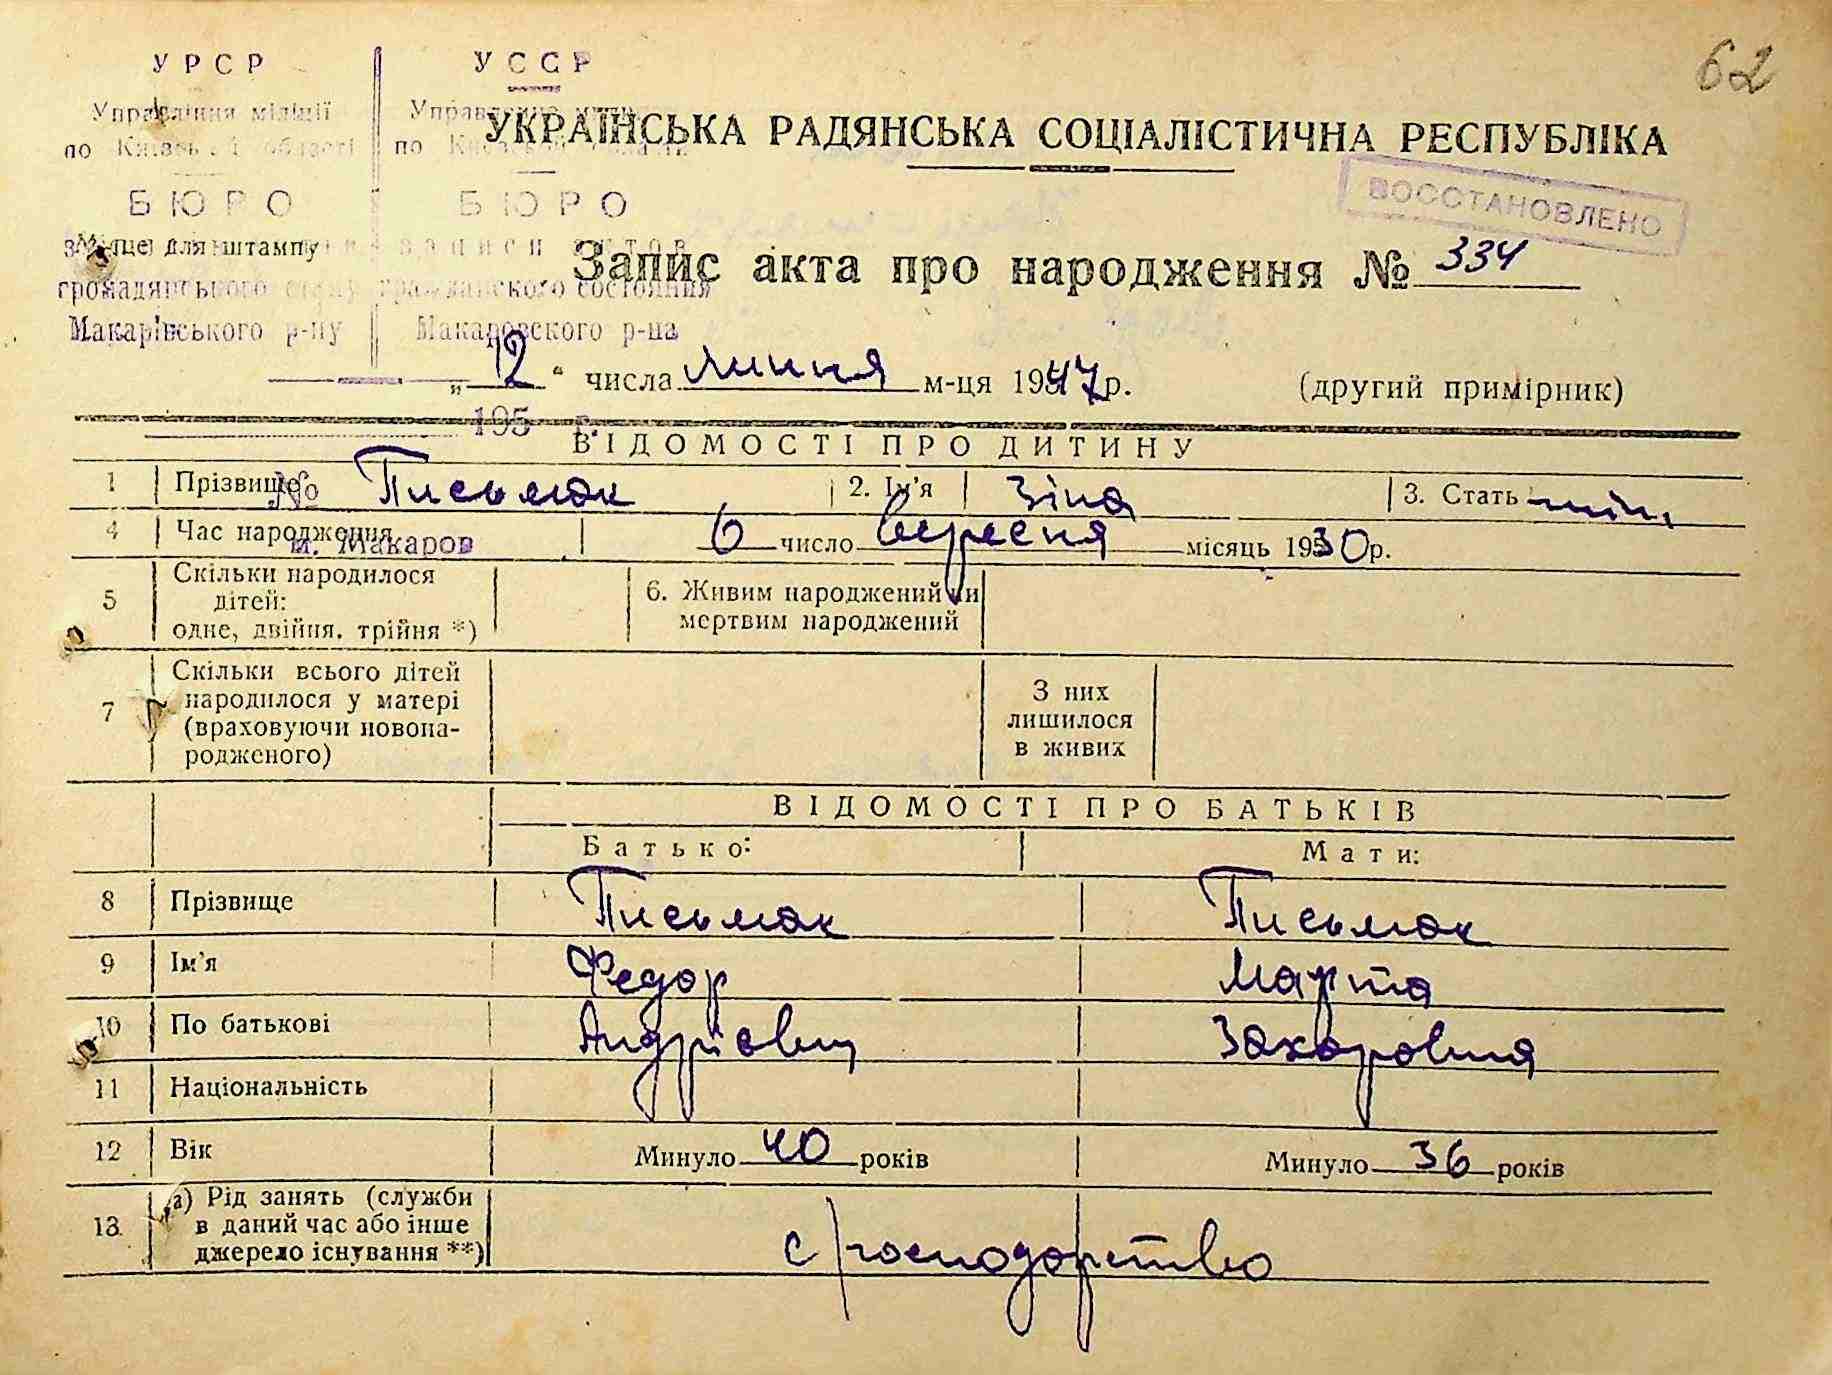 62
УРСР УССР
Управління міліції
по Київській області по Киевской области
УКРАЇНСЬКА РАДЯНСЬКА СОЦІАЛІСТИЧНА РЕСПУБЛІКА
ВОССТАНОВЛЕНО
БЮРО БЮРО
Місце для штампу записи актов
Запис акта про народження № 334
громадянського стану гражданского состояния
Макарівського р-ну Макаровского р-на
„12“ числа липня м-ця 1947 р. (другий примірник)
195 г.
ВІДОМОСТІ ПРО ДИТИНУ
1 Прізвище № Письмак 2. Ім'я Зіна 3. Стать
4 Час народження 6 число вересня місяць 1930 р.
м. Макаров
5 Скільки народилося
дітей:
одне, двійня, трійня *)
6. Живим народжений чи
мертвим народжений
7 Скільки всього дітей
народилося у матері
(враховуючи новона-
родженого)
З них
лишилося
в живих
ВІДОМОСТІ ПРО БАТЬКІВ
Батько: Мати:
8 Прізвище Письмак Письмак
9 Ім'я Федор Марта
10 По батькові Андрієвич Захаровня
11 Національність
12 Вік Минуло 40 років Минуло 36 років
13 а) Рід занять (служби
в даний час або інше
джерело існування **)
с/господарство